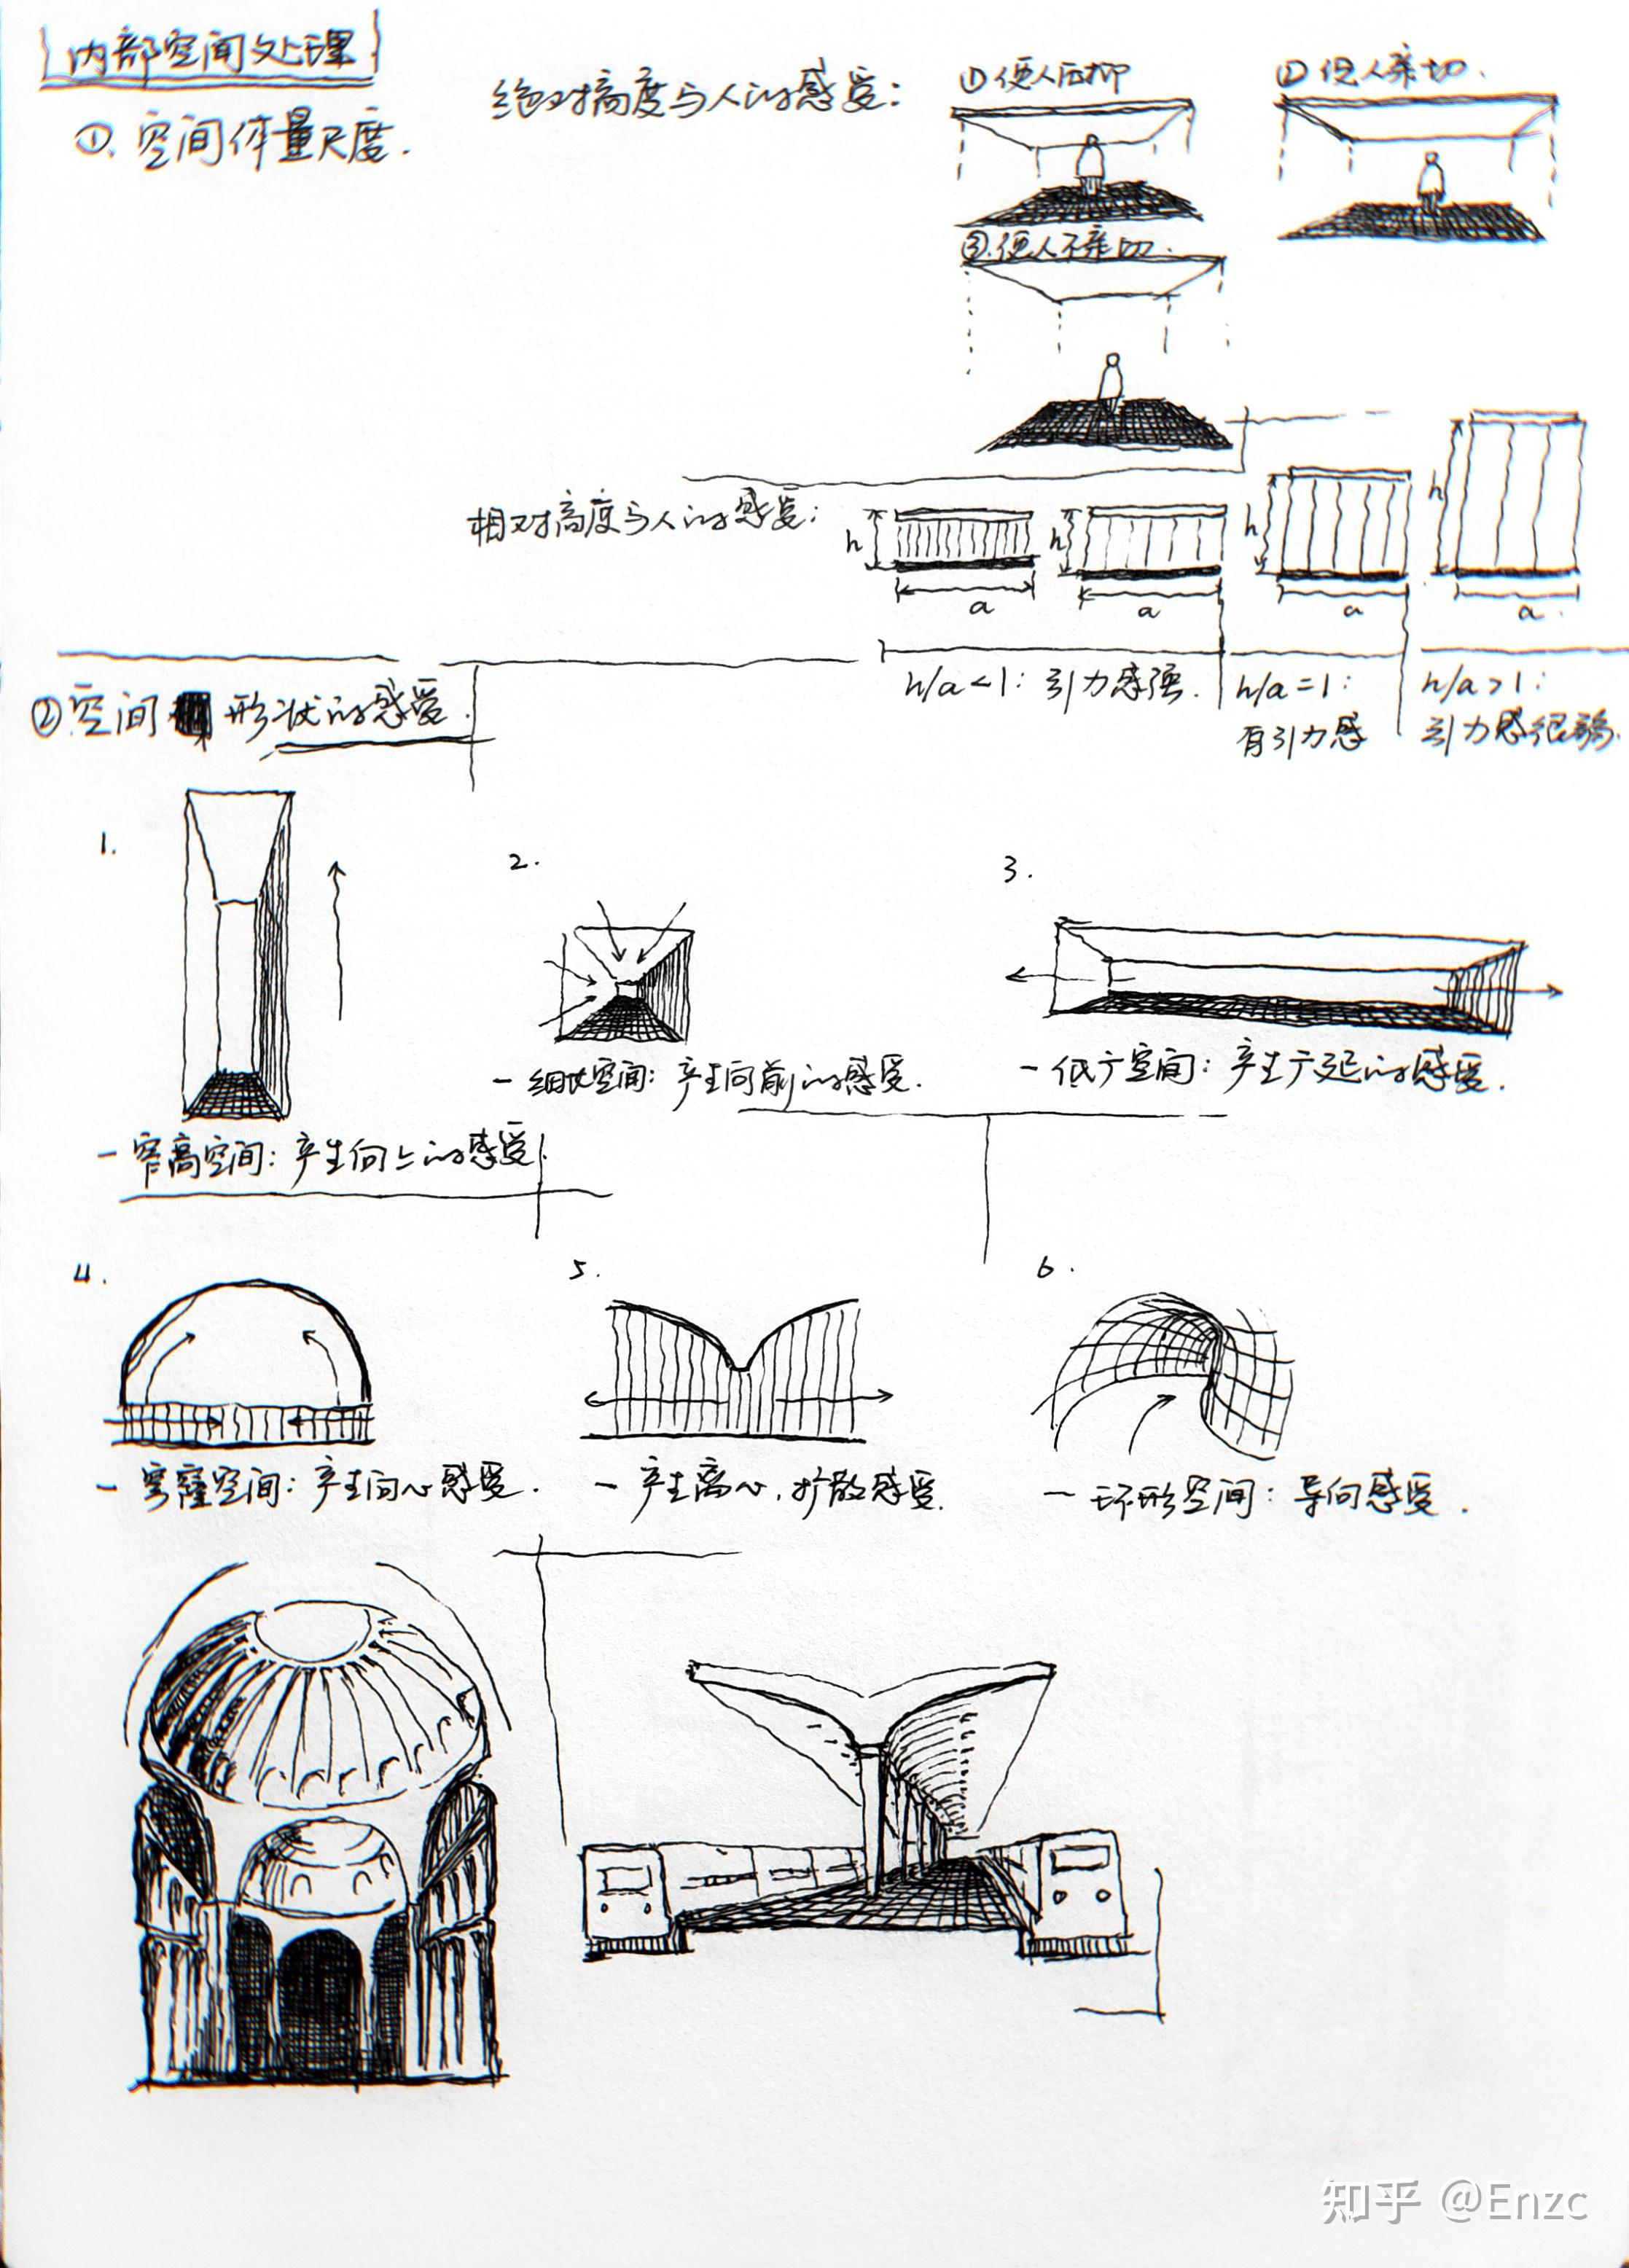 内部空间处理
①.空间体量尺度.
绝对高度与人的感受:
①使人压抑
②使人亲切.
③.使人不亲切.
相对高度与人的感受:
h
a
h
a
h
a
h
a.
h/a<1: 引力感强.
h/a=1:
有引力感
h/a>1:
引力感很弱.
②空间 形状的感受.
1.
2.
3.
- 窄高空间: 产生向上的感受.
- 细长空间: 产生向前的感受.
- 低广空间: 产生广延的感受.
4.
5.
6.
- 穹窿空间: 产生向心感受.
- 产生离心,扩散感受.
- 环形空间: 导向感受.
知乎 @Enzc